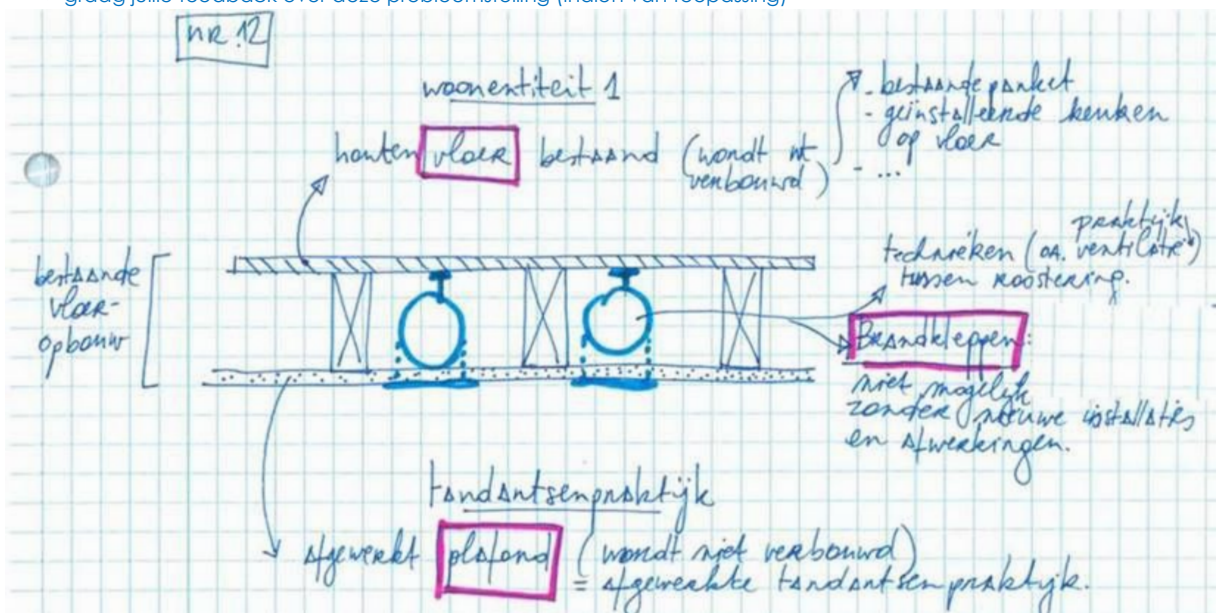 graag jullie feedback over deze probleemstelling (indien van toepassing)
nr. 12
woonentiteit 1
houten vloer bestaand (wordt nt
verbouwd)
- bestaande parket
- geïnstalleerde keuken
op vloer
- ...
praktijk
technieken (oa. ventilatie)
tussen roostering.
bestaande
vloer-
opbouw
Brandkleppen:
niet mogelijk
zonder nieuwe installaties
en afwerkingen.
tandartsenpraktijk
afgewerkt plafond (wordt niet verbouwd)
= afgewerkte tandartsenpraktijk.